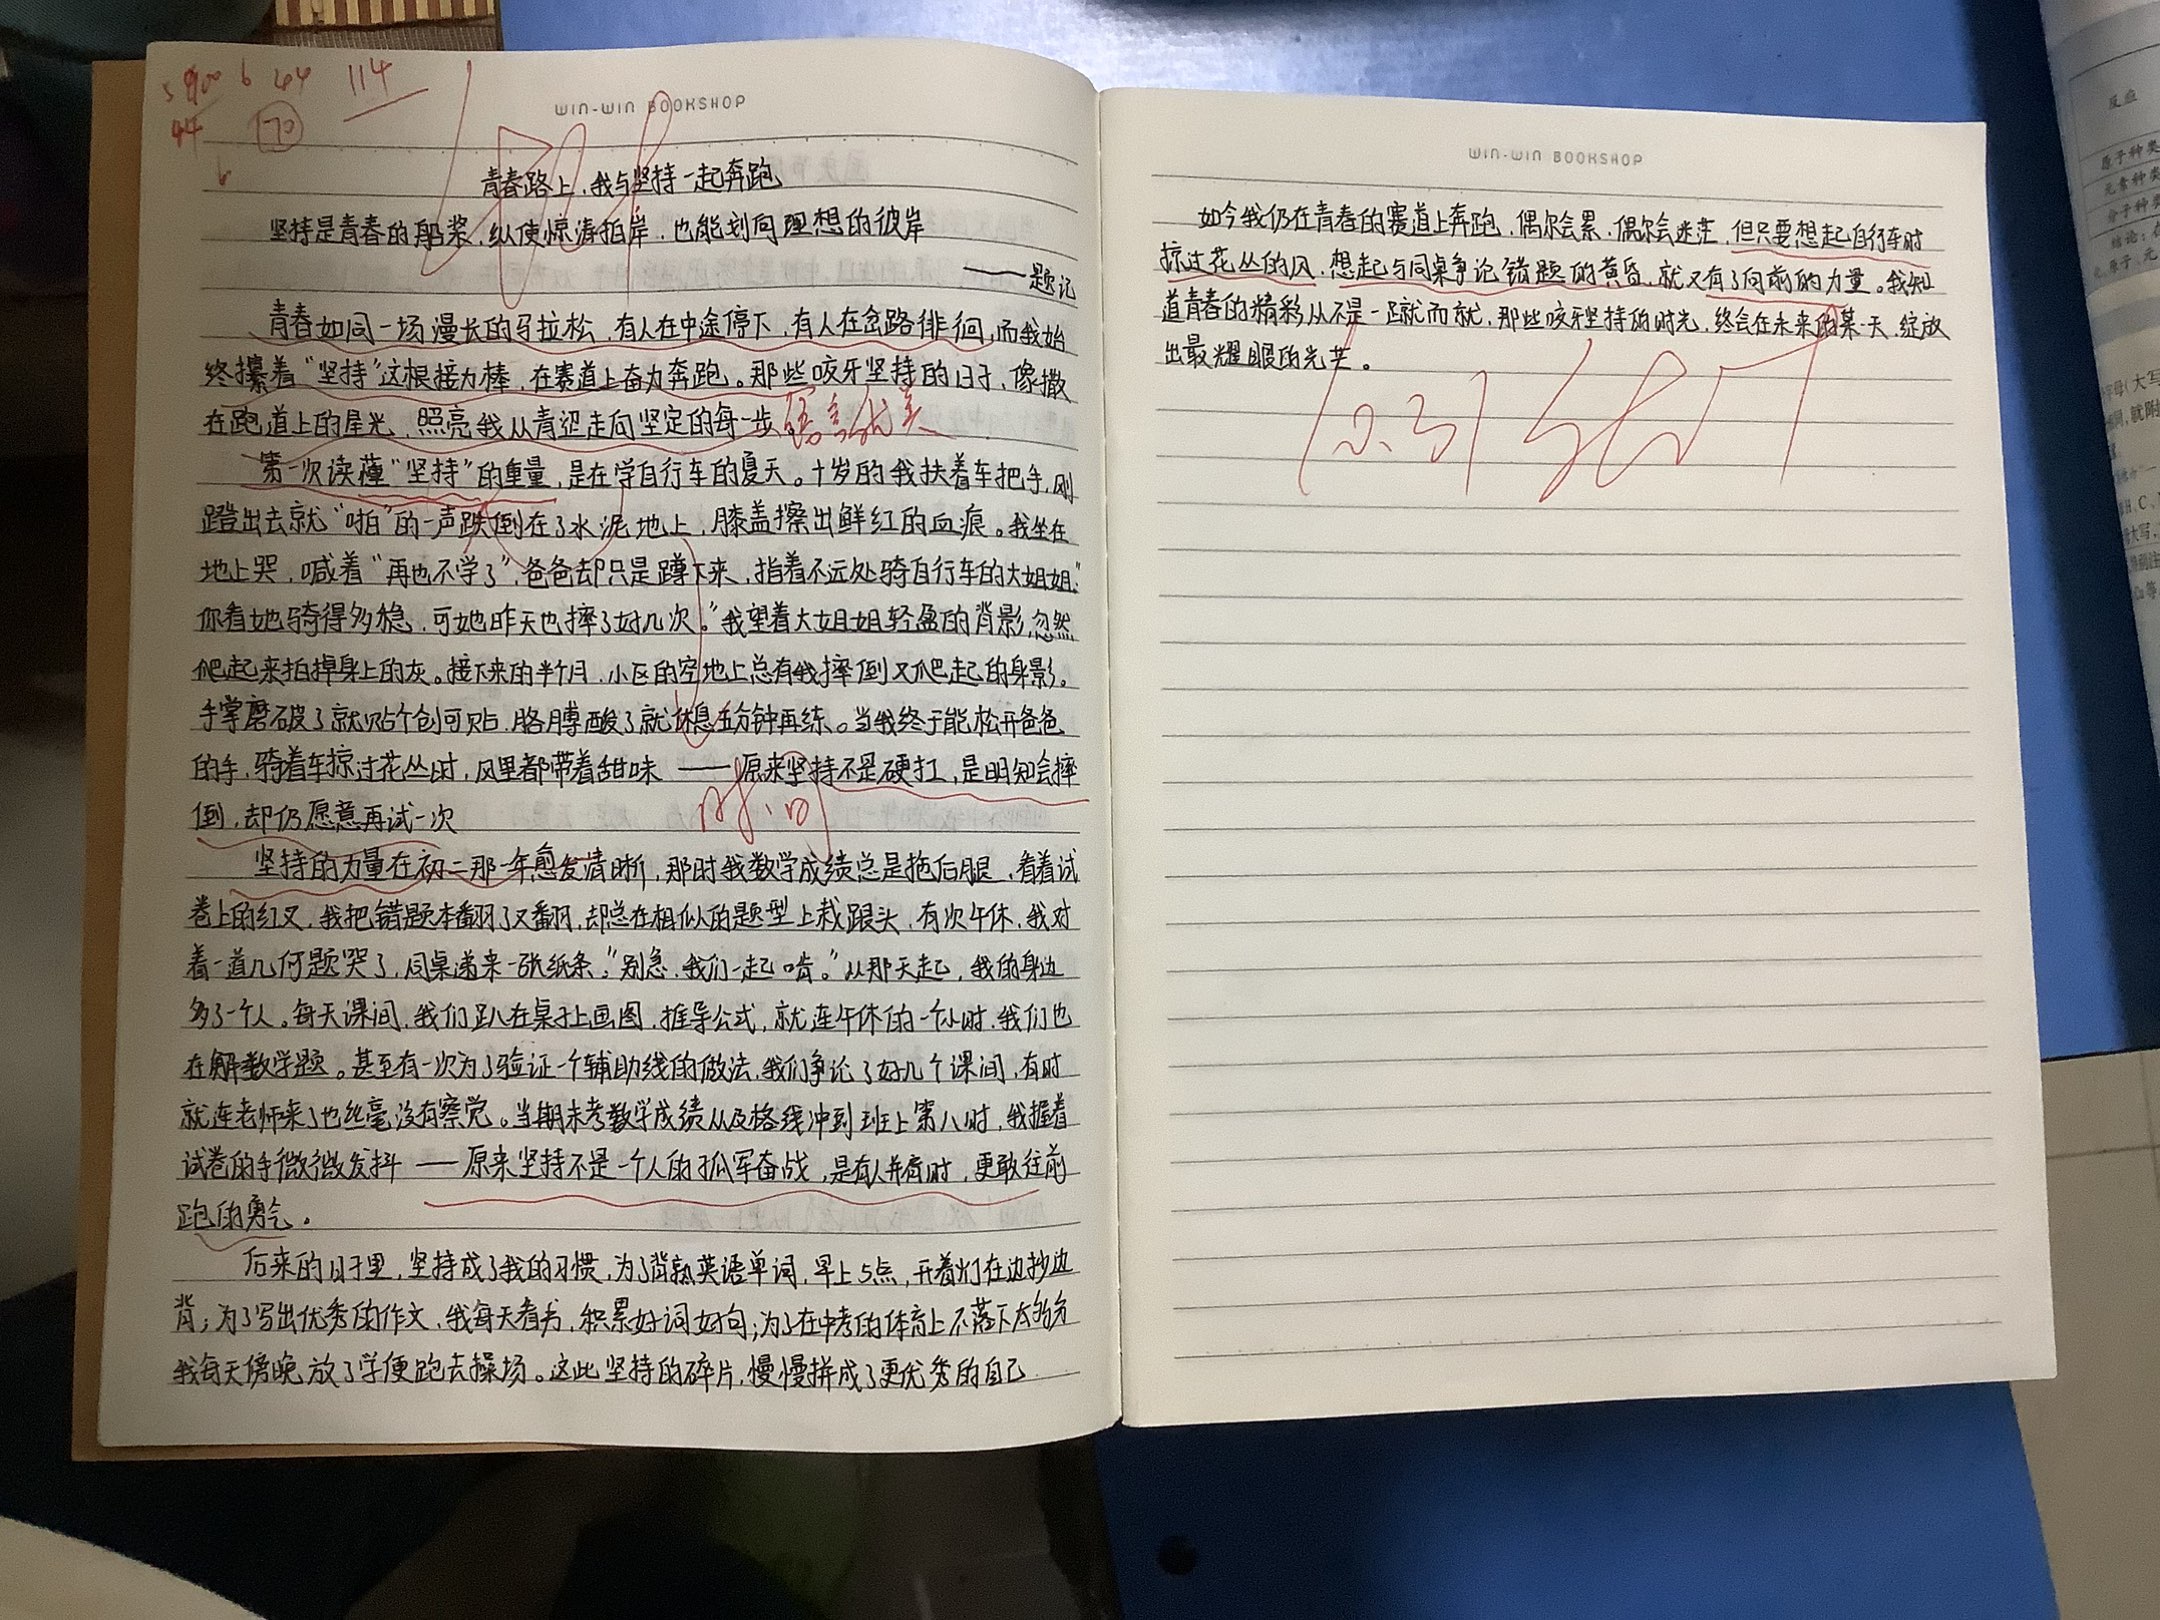 WIN-WIN BOOKSHOP
114
44
70
青春路上,我与坚持一起奔跑
坚持是青春的船桨,纵使惊涛拍岸,也能划向理想的彼岸
——题记
青春如同一场漫长的马拉松,有人在中途停下,有人在岔路徘徊,而我始
终攥着“坚持”这根接力棒,在赛道上奋力奔跑。那些咬牙坚持的日子,像撒
在跑道上的星光,照亮我从青涩走向坚定的每一步。
语言优美
第一次读懂“坚持”的重量,是在学自行车的夏天。十岁的我扶着车把手,刚
蹬出去就“啪”的一声跌倒在了水泥地上,膝盖擦出鲜红的血痕。我坐在
地上哭,喊着“再也不学了”,爸爸却只是蹲下来,指着不远处骑自行车的大姐姐:“
你看她骑得多稳,可她昨天也摔了好几次。”我望着大姐姐轻盈的背影,忽然
爬起来拍掉身上的灰。接下来的半个月,小区的空地上总有我摔倒又爬起的身影。
手掌磨破了就贴个创可贴,胳膊酸了就休息五分钟再练。当我终于能松开爸爸
的手,骑着车掠过花丛时,风里都带着甜味——原来坚持不是硬扛,是明知会摔
倒,却仍愿意再试一次
时间
坚持的力量在初二那一年愈发清晰,那时我数学成绩总是拖后腿,看着试
卷上的红叉,我把错题本翻了又翻,却总在相似的题型上栽跟头,有次午休,我对
着一道几何题哭了,同桌递来一张纸条:“别急,我们一起啃。”从那天起,我的身边
多了一个人。每天课间,我们趴在桌子上画图,推导公式,就连午休的一个小时,我们也
在解数学题。甚至有一次为了验证一个辅助线的做法,我们争论了好几个课间,有时
就连老师来了也丝毫没有察觉。当期末考数学成绩从及格线冲到班上第八时,我握着
试卷的手微微发抖——原来坚持不是一个人的孤军奋战,是有人并肩时,更敢往前
跑的勇气。
后来的日子里,坚持成了我的习惯,为了背熟英语单词,早上5点,开着灯在边抄边
背;为了写出优秀的作文,我每天看书,积累好词好句;为了在中考的体育上不落下太多分
我每天傍晚放了学便跑去操场。这些坚持的碎片,慢慢拼成了更优秀的自己
WIN-WIN BOOKSHOP
如今我仍在青春的赛道上奔跑,偶尔会累,偶尔会迷茫,但只要想起自行车时
掠过花丛的风,想起与同桌争论错题的黄昏,就又有了向前的力量。我知
道青春的精彩从不是一蹴而就,那些咬牙坚持的时光,终会在未来的某一天,绽放
出最耀眼的光芒。